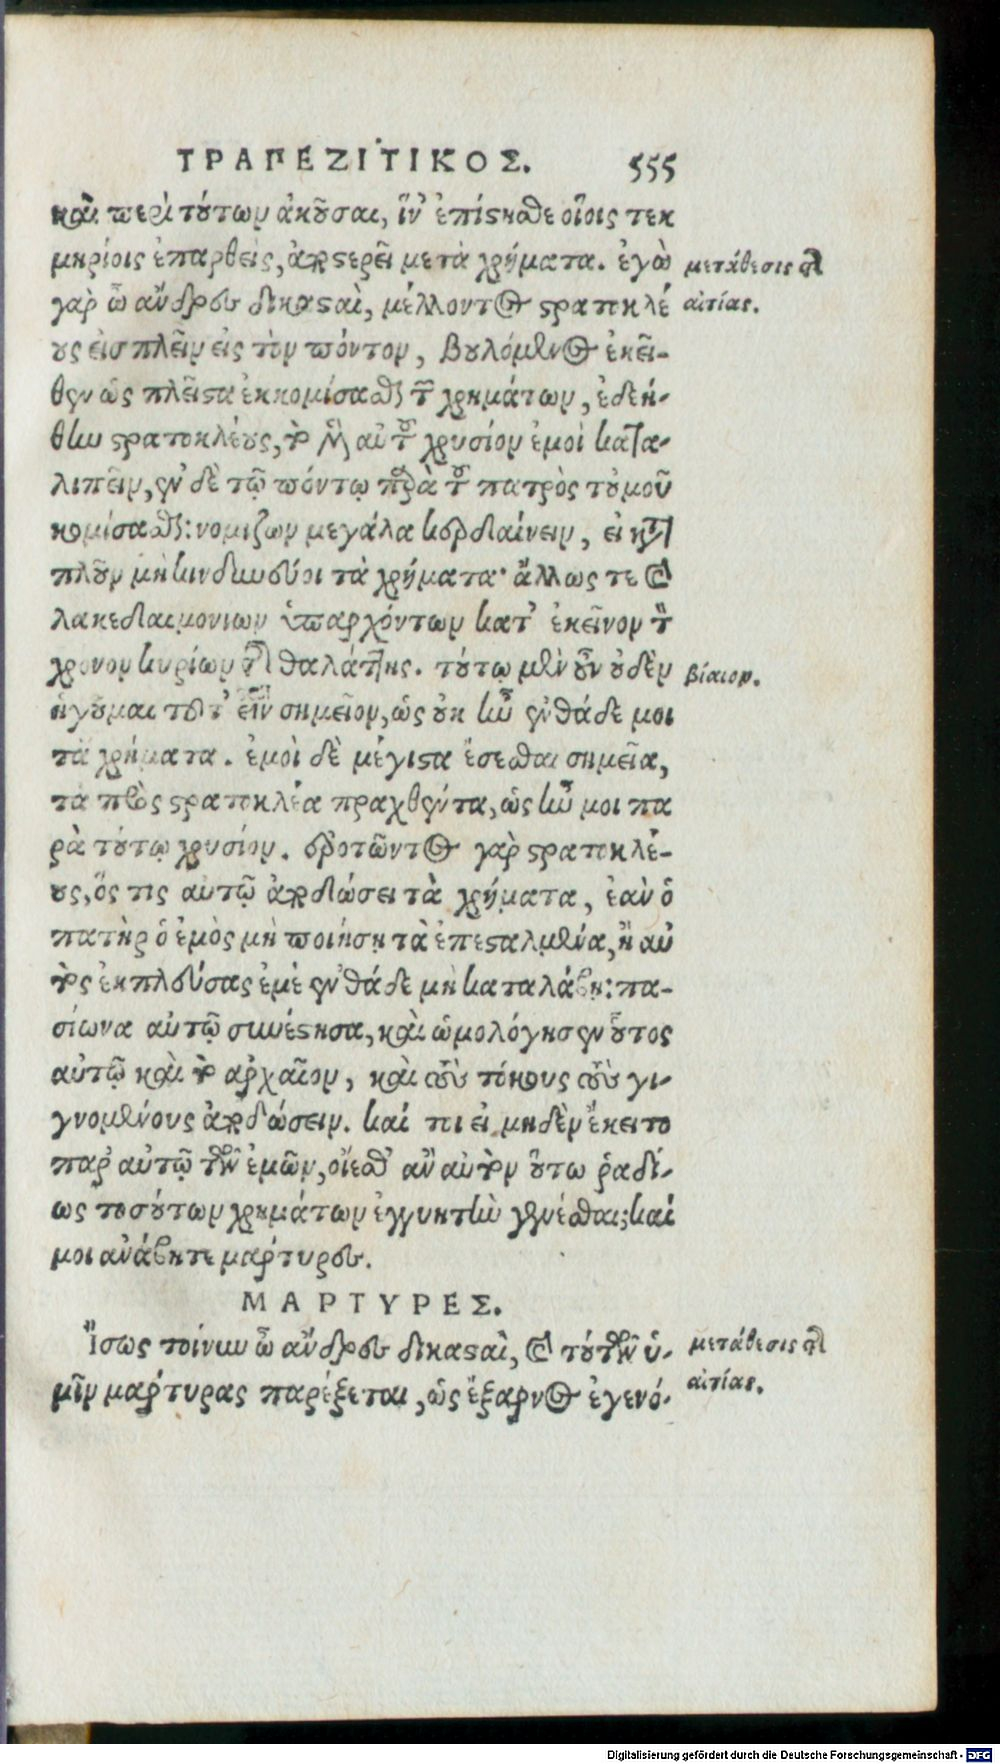 ΤΡΑΠΕΖΙΤΙΚΟΣ. 555
καὶ περὶ τούτων ἀκοῦσαι, ἵν' ἐπίστησθε οἵοις τεκ
μηρίοις ἐπαρθεὶς, ἀποστερεῖ με τὰ χρήματα. ἐγὼ
γὰρ ὦ ἄνδρες δικασταὶ, μέλλοντος στρατοκλέ
ους εἰσπλεῖν εἰς τὸν πόντον, βουλόμενος ἐκεῖ-
θεν ὡς πλεῖστα ἐκκομίσασθαι τῶν χρημάτων, ἐδεή-
θην στρατοκλέους, τὸ μὲν αὐτοῦ χρυσίον ἐμοὶ κατα-
λιπεῖν, ἐν δὲ τῷ πόντῳ παρὰ τοῦ πατρὸς τοὐμοῦ
κομίσασθαι: νομιζων μεγάλα κερδαίνειν, εἰ κατὰ
πλοῦν μὴ κινδυνεύοι τὰ χρήματα· ἄλλως τε καὶ
λακεδαιμονιων ὑπαρχόντων κατ' ἐκεῖνον τὸν
χρονον κυρίων τῆς θαλάττης. τούτῳ μὲν οὖν οὐδὲν
ἡγοῦμαι τοῦτ' εἶναι σημεῖον, ὡς οὐκ ἦν ἐνθάδε μοι
τὰ χρήματα. ἐμοὶ δὲ μέγιστα ἔσεσθαι σημεῖα,
τὰ πρὸς στρατοκλέα πραχθέντα, ὡς ἦν μοι πα
ρὰ τούτῳ χρυσίον. ἐρωτῶντος γὰρ στρατοκλέ-
ους, ὅς τις αὐτῷ ἀποδώσει τὰ χρήματα, ἐὰν ὁ
πατὴρ ὁ ἐμὸς μὴ ποιήσῃ τὰ ἐπεσταλμένα, ἢ αὐ
τὸς ἐκπλεύσας ἐμὲ ἐνθάδε μὴ καταλάβῃ: πα-
σίωνα αὐτῷ συνέστησα, καὶ ὡμολόγησεν οὗτος
αὐτῷ καὶ τὸ ἀρχαῖον, καὶ τοὺς τόκους τοὺς γι-
γνομένους ἀποδώσειν. καί τοι εἰ μηδὲν ἔκειτο
παρ' αὐτῷ τῶν ἐμῶν, οἴεσθ' ἂν αὐτὸν οὕτω ῥαδί-
ως τοσούτων χρημάτων ἐγγυητὴν γενέσθαι; καί
μοι ἀνάβητε μάρτυρες.
ΜΑΡΤΥΡΕΣ.
Ἴσως τοίνυν ὦ ἄνδρες δικασταὶ, καὶ τούτων ὑ-
μῖν μάρτυρας παρέξεται, ὡς ἔξαρνος ἐγενό-
μετάθεσις τῆς
αἰτίας.
βίαιον.
μετάθεσις τῆς
αἰτίας.
Digitalisierung gefördert durch die Deutsche Forschungsgemeinschaft - DFG